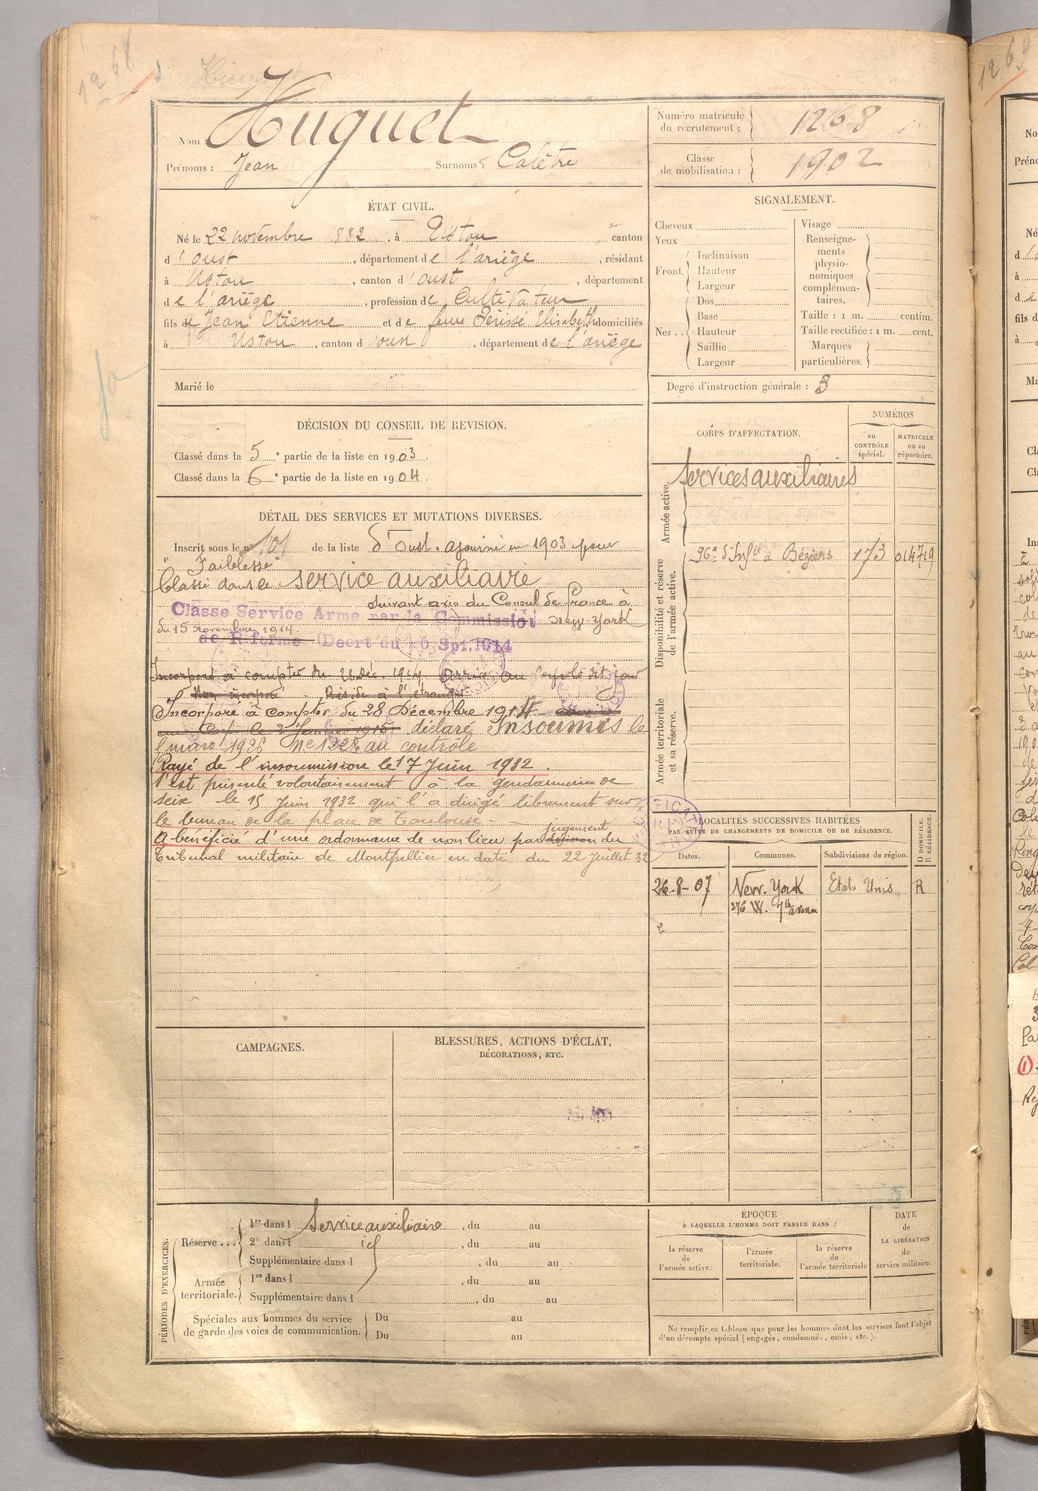 1268
Nom Huguet
Prénoms : Jean Surnoms : Calètre
Numéro matricule du recrutement : 1268
Classe de mobilisation : 1902
ÉTAT CIVIL.
Né le 22 novembre 1882, à Ustou canton
d'oust, département de l'ariège, résidant
à Ustou, canton d'oust, département
de l'ariège, profession de Cultivateur
fils de Jean Etienne et de feue Périssé Elisabeth domiciliés
à Ustou, canton d'oust, département de l'ariège
Marié le
SIGNALEMENT.
Cheveux
Yeux
Front. Inclinaison
Hauteur
Largeur
Nez.. Dos
Base
Hauteur
Saillie
Largeur
Visage
Renseignements physionomiques complémentaires.
Taille : 1 m. centim.
Taille rectifiée : 1 m. cent.
Marques particulières.
Degré d'instruction générale : 3
DÉCISION DU CONSEIL DE REVISION.
Classé dans la 5e partie de la liste en 1903.
Classé dans la 6e partie de la liste en 1904.
DÉTAIL DES SERVICES ET MUTATIONS DIVERSES.
Inscrit sous le n° 101 de la liste d'Oust. ajourné en 1903 pour
"Faiblesse"
Classé dans le service auxiliaire
suivant avis du Consul de France à
Classe Service Armé par la Commission New-York
du 15 novembre 1914
de Réforme (Décret du 26 Spt. 1914
Incorporé à compter du 28 Déc. 1914. Arrivé au Corps le dit jour
Non incorporé. Réside à l'étranger
Incorporé à compter du 28 Décembre 1914
au Corps le 2 Janvier 1915 déclaré Insoumis le
mars 1926 au contrôle
Rayé de l'insoumission le 17 Juin 1932.
S'est présenté volontairement à la gendarmerie de
Seix le 15 Juin 1932 qui l'a dirigé librement sur
le bureau de la place de Toulouse -
A bénéficié d'une ordonnance de non lieu par jugement du
Tribunal militaire de Montpellier en date du 22 juillet 32
CORPS D'AFFECTATION.
NUMÉROS
au CONTRÔLE spécial.
MATRICULE ou au répertoire.
Armée active.
Services auxiliaires
Disponibilité et réserve de l'armée active.
96e d'Infie à Béziers 173 014719
Armée territoriale et sa réserve.
LOCALITÉS SUCCESSIVES HABITÉES
PAR SUITE DE CHANGEMENTS DE DOMICILE OU DE RÉSIDENCE.
Dates. Communes. Subdivisions de région. D DOMICILE. R RÉSIDENCE.
26-8-07 New-York Etats Unis R
276 W. 7th avenue
CAMPAGNES.
BLESSURES, ACTIONS D'ÉCLAT,
DÉCORATIONS, ETC.
PÉRIODES D'EXERCICES.
Réserve... 1re dans l Service auxiliaire, du au
2e dans l id, du au
Supplémentaire dans l , du au
Armée territoriale. 1re dans l , du au
Supplémentaire dans l , du au
Spéciales aux hommes du service de garde des voies de communication. Du au
Du au
ÉPOQUE
À LAQUELLE L'HOMME DOIT PASSER DANS :
la réserve de l'armée active.
l'armée territoriale.
la réserve de l'armée territoriale
DATE de LA LIBÉRATION du service militaire.
Ne remplir ce tableau que pour les hommes dont les services font l'objet
d'un décompte spécial (engagés, condamné, omis, etc.).
1269